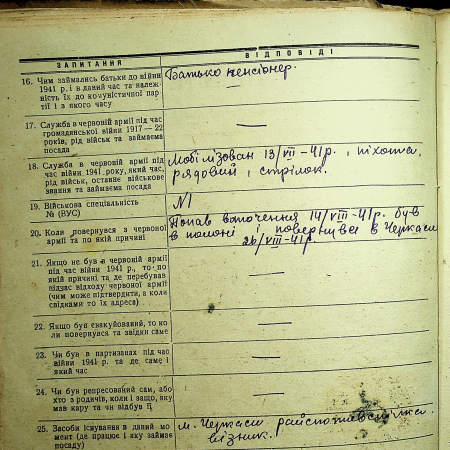 ЗАПИТАННЯ
ВІДПОВІДІ
16. Чим займались батьки до війни
1941 р. і в даний час та належ-
ність їх до комуністичної пар-
тії і з якого часу
Батько пенсіонер.
—
17. Служба в червоній армії під час
громадянської війни 1917—22
років, рід військ та займаєма
посада
—
18. Служба в червоній армії під
час війни 1941 року, який час,
рід військ, останнє військове
звання та займаєма посада
Мобілізован 13/VII-41р., піхота
рядовий, стрілок.
19. Військова спеціальність
№ (ВУС)
№1
20. Коли повернувся з червоної
армії та по якій причині
Попав в оточення 14/VIII-41р. був
в полоні і повернувся в Черкаси
26/VIII-41р.
21. Якщо не був в червоній армії
під час війни 1941 р., то по
якій причині та де перебував
підчас відходу червоної армії
(чим може підтвердити, а коли
свідками то їх адреса)
—
22. Якщо був евакуйований, то ко-
ли повернувся та звідки саме
—
23. Чи був в партизанах під час
війни 1941 р. та де саме і
який час
—
24. Чи був репресований сам, або
хто з родичів, коли і защо, яку
мав кару та чи відбув її
—
25. Засоби існування в даний мо-
мент (де працює і яку займає
посаду)
м. Черкаси
візник.